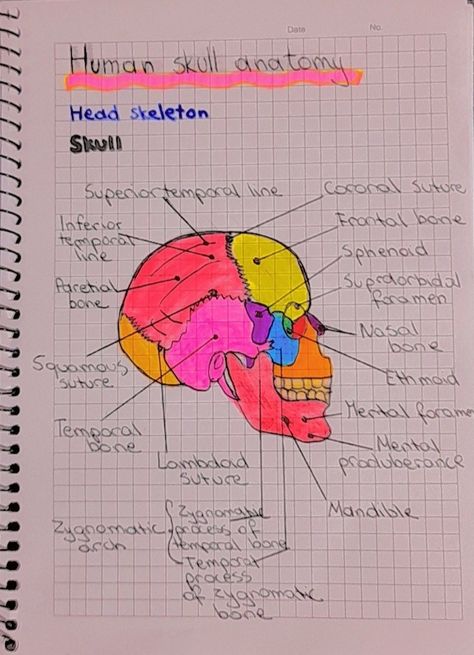 Date No.
Human skull anatomy
Head skeleton
Skull
Superior temporal line
Coronal suture
Inferior
temporal
line
Frontal bone
Sphenoid
Paretial
bone
Supraorbidal
foramen
Nasal
bone
Squamous
suture
Ethmoid
Temporal
bone
Mental forame
Mental
produberance
Lambdoid
suture
Mandible
Zygnomatic
arch
Zygnomatic
process of
temporal bone
Temporal
process
of zygnomatic
bone